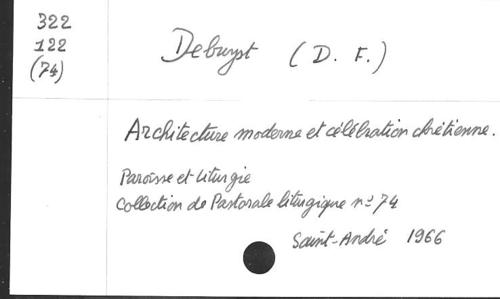 322
122
(74)
Debuyst (D. F.)
Architecture moderne et célébration chrétienne.
Paroisse et Liturgie
Collection de Pastorale liturgique nº 74
Saint-André 1966